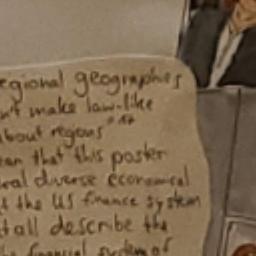 egional geographies
n't make law-like
about regions"
ean that this poster
ral diverse economical
t the US finance system
t all describe the
financial system of